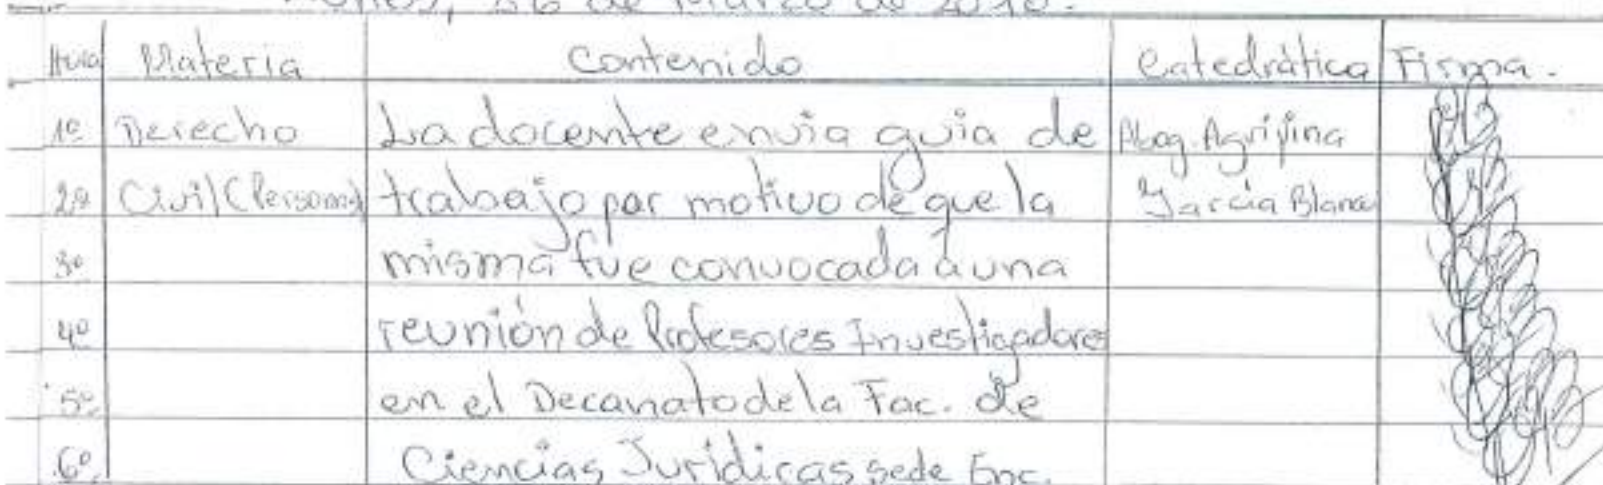 de Marzo de
Hora Materia Contenido Catedrática Firma.
1º Derecho La docente envia guia de Abog. Agripina
2º Civil (Personas) trabajo por motivo de que la García Blanco
3º misma fue convocada a una
4º reunión de Profesores Investigadores
5º en el Decanato de la Fac. de
6º Ciencias Jurídicas sede Enc.